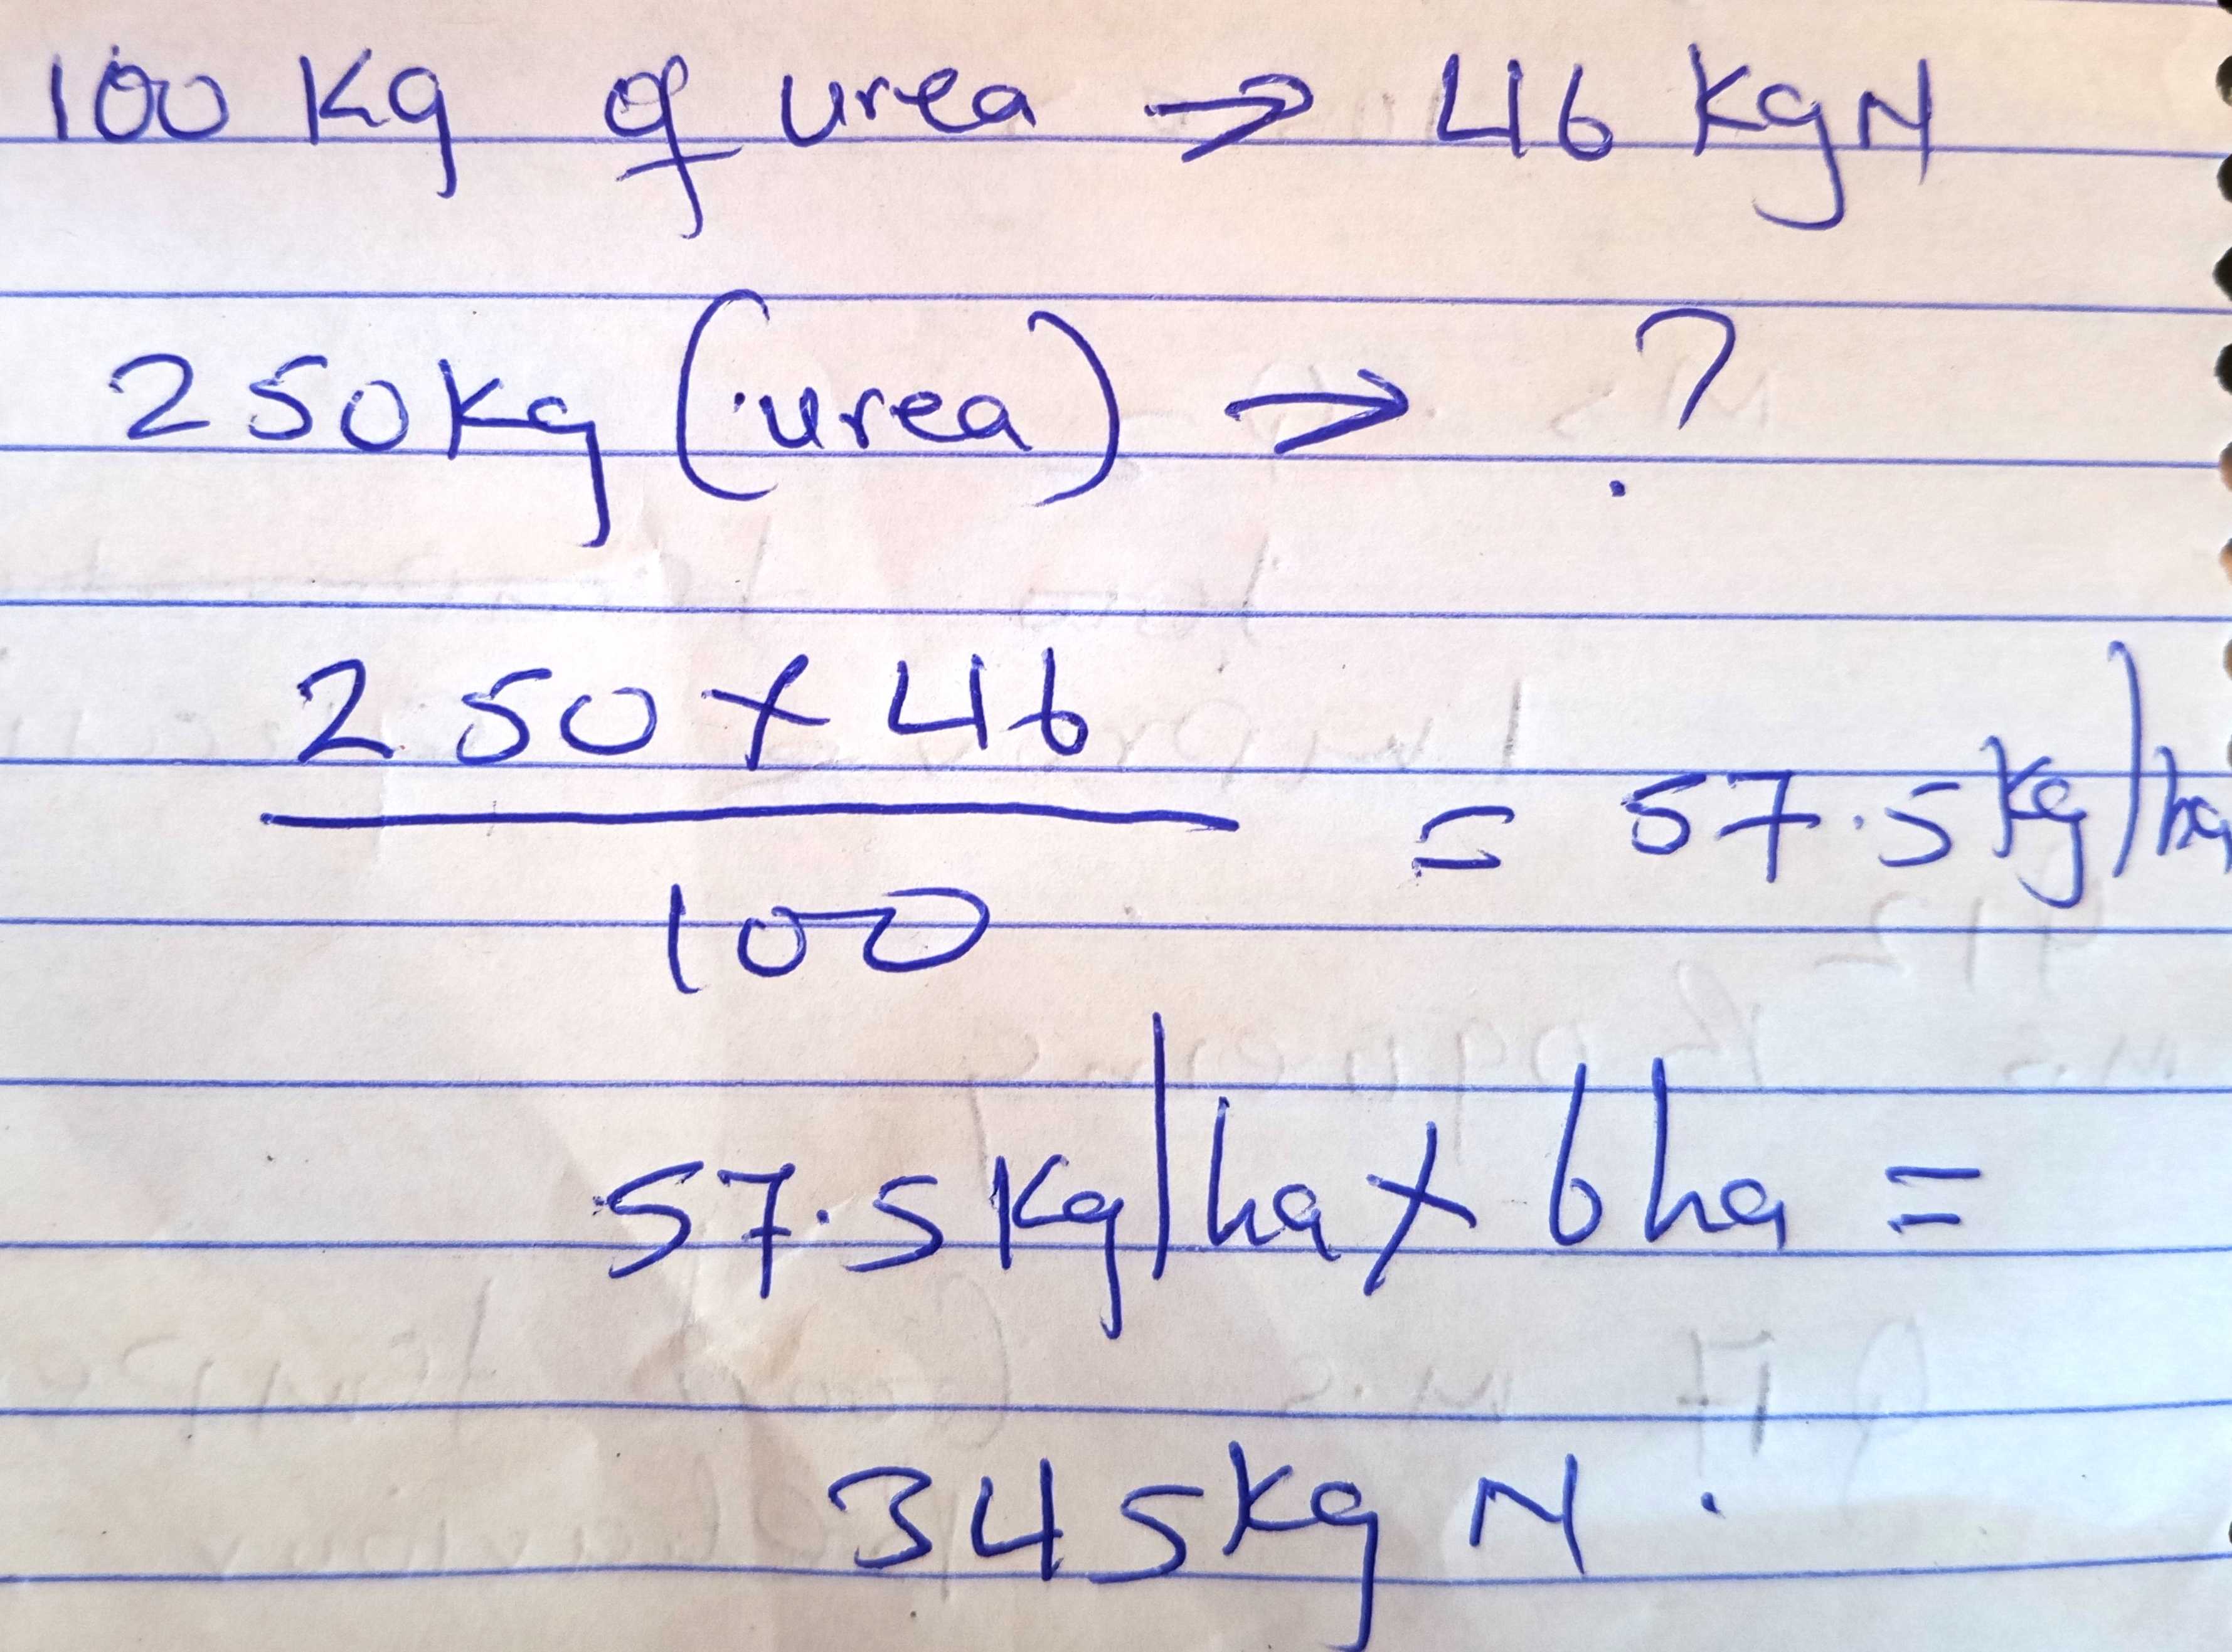 100 Kg of urea → 46 KgN
250Kg (urea) → ?
250 x 46
100
= 57.5Kg/ha
57.5Kg/ha x 6ha =
345Kg N.